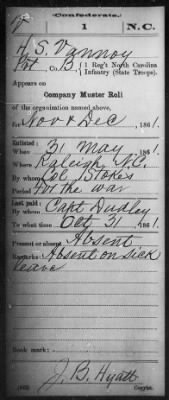 Confederate.
V 1 N.C.
H. S. Vannoy
Pvt, Co. B, 1 Reg't North Carolina
Infantry (State Troops).
Appears on
Company Muster Roll
of the organization named above,
for Nov & Dec, 1861.
Enlisted:
When 31 May, 1861.
Where Raleigh N.C.
By whom Col Stokes
Period for the war
Last paid:
By whom Capt Dudley
To what time Oct 31, 1861.
Present or absent Absent
Remarks: Absent on sick
leave
Book mark:
J. B. Hyatt
(642) Copyist.